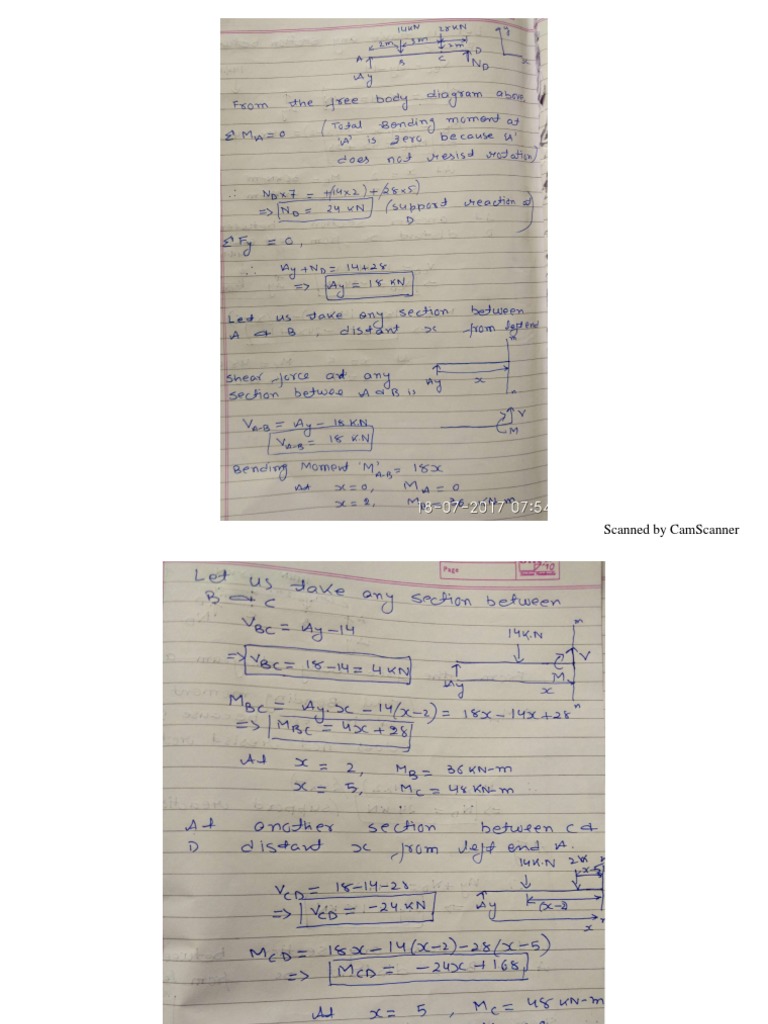 14KN 28KN
2m 3m 2m
A B C D
Ay ND
y
x
From the free body diagram above,
ΣMA = 0 (Total Bending moment at
'A' is zero because 'A'
does not resist rotation)
∴ ND×7 = +(14×2)+(28×5)
=> ND = 24 KN (support reaction @
D
ΣFy = 0,
∴ Ay+ND = 14+28
=> Ay = 18 KN
Let us take any section between
A & B, distant x from left end
shear force at any
section betwee A & B is
Ay x
VA-B = Ay - 18 KN
VA-B = 18 KN
V
M
Bending Moment 'M'A-B = 18x
At x=0, MA=0
x=2, MB=36 KN-m
18-07-2017 07:54
Scanned by CamScanner
Page
Let us take any section between
B & C
VBC = Ay-14
=> VBC = 18-14 = 4 KN
14K.N
V
M
Ay x
MBC = Ay.x - 14(x-2) = 18x-14x+28
=> MBC = 4x+28
At x = 2, MB = 36 KN-m
x = 5, MC = 48 KN-m
At another section between C &
D distant x from left end A.
14K.N
(x-5)
Ay (x-2)
x
VCD = 18-14-28
=> VCD = -24 KN
MCD = 18x-14(x-2)-28(x-5)
=> MCD = -24x+168
At x = 5, MC = 48 KN-m